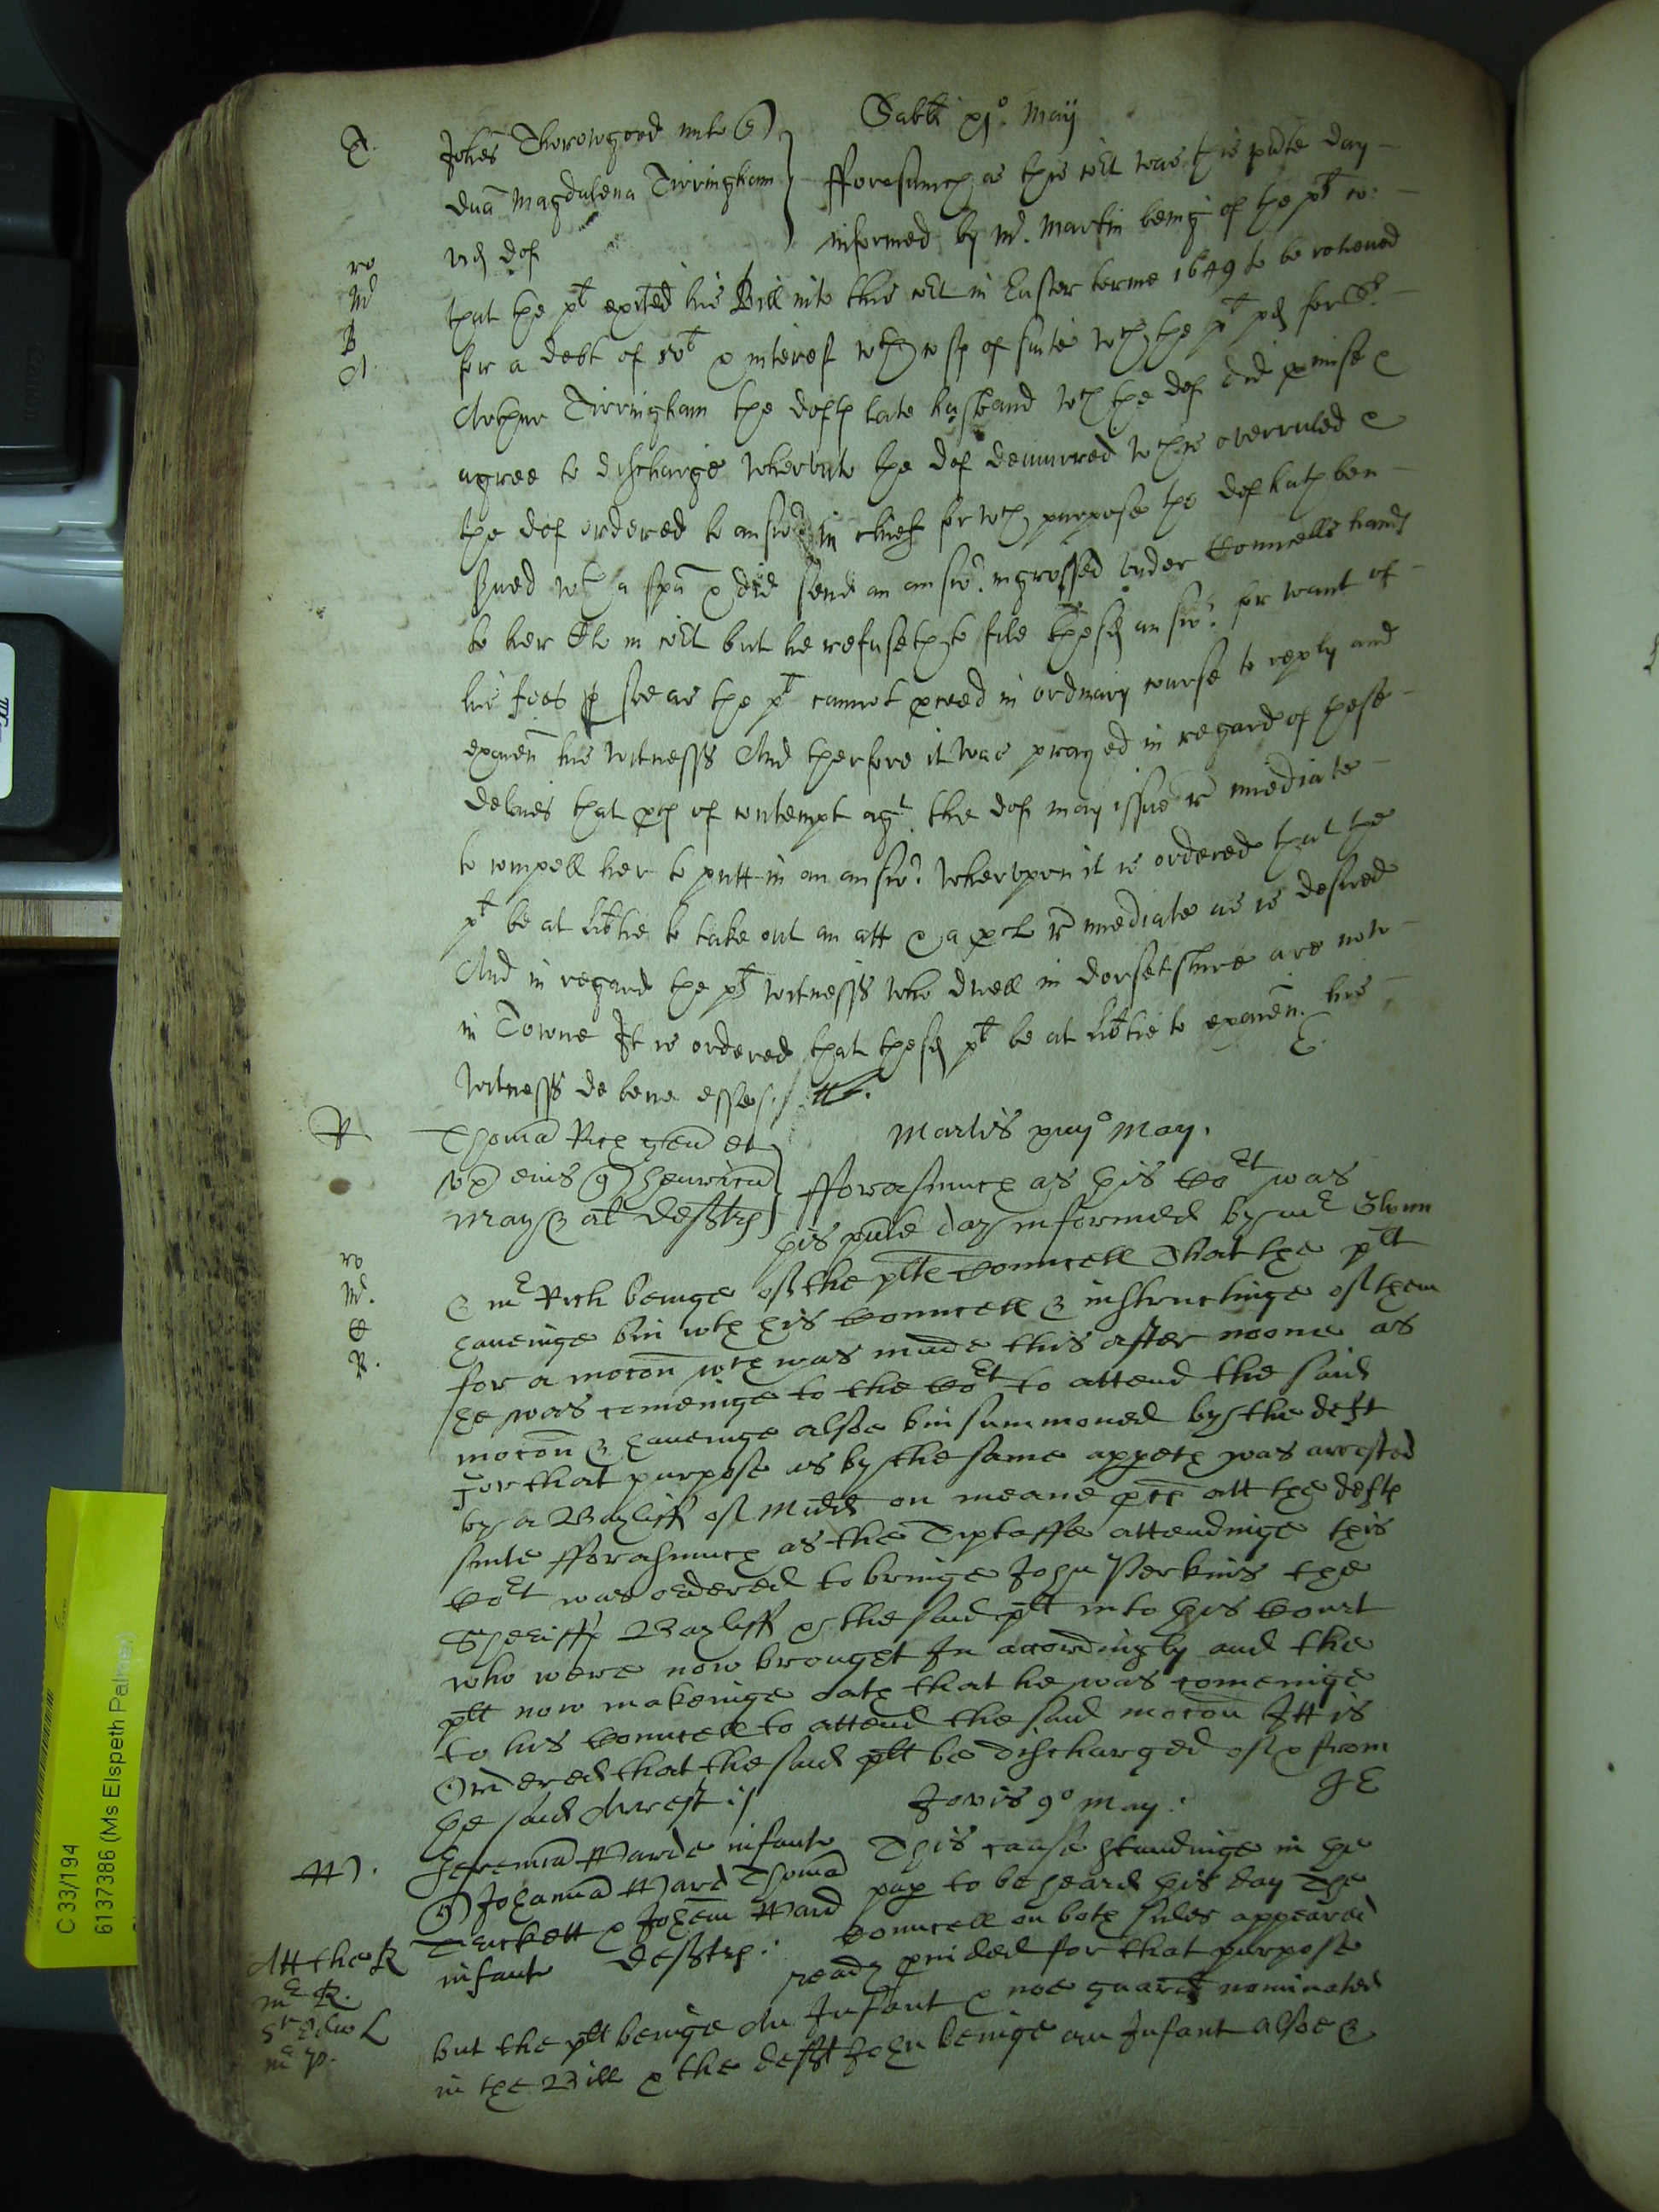 Sabti xj.o Maij
T. Johes Thorowgood milo
dnã Magdalena Tirringham
vid def
fforasmuch as this cot was this pnte day
informed by Mr. Martin being of the plt co:
that the plt exited his Bill into this cot in Easter terme 1649 to be releived
for a debt of & interest wth of suite wch the plt pd for Sr
Arthur Tirringham the defts late husband wch the def did pmise &
agree to discharge wherunto the def demurred wch is overruled &
the def ordered to answr in chief for wch purpose the def hath ben
served wth a spa & did send an answr. ingrossed under Councells hands
to her Clo in cot but he refuseth to file the sd answr. for want of
his fees soe as the plt cannot pceed in ordinary course to reply and
examen his witnesss And therfore it was prayed in regard of these
delaies that pch of contempt agt. the def may issue r imediate
to compell her to putt in an answr. wherupon it is ordered that the
plt be at libtie to take out an att & a pcl r imediate as is desired
And in regard the plts witnesss who dwell in dorsetshire are now
in Towne It is ordered that the sd plt be at libtie to examen. his
witnesss de bene esse
E.
Martis May.
R Thomã Rich gen et
ux eius Henricũ
May & al defts
fforasmuch as this Cot was
this pnte day informed by mr Glynn
& mr Rich beinge of the plts Councell That the plt
haveinge bin wth his Councell & instructinge of them
for a mocon wch was made this after noone as
he was comeinge to the Cot to attend the said
mocon & haveinge alsoe bin summoned by the deft
For that purpose as by the same appeth was arrested
by a Bayliff of Midd on meane pces att the defts
suite fforasmuch as the Tipstaffe attendinge this
Cot was ordered to bringe John Perkins the
Sheriffs Bayliff & the said plt into this Court
who were now brought In accordingly and the
plt now makeinge oath that he was comeinge
to his Councell to attend the said mocon Itt is
Ordered that the said plt be discharged of & from
the said Arrest
JE
Jovis 9o May:
W. Jeremiã Warde infante
Johannã Ward Thomã
& Johem Ward
infante defts:
This cause standinge in the
pap to be heard this day The
Councell on both sides appeared
ready pvided for that purpose
Att the R
mr R.
mr p.
but the plt beinge An Infant & noe guard nominated
in the Bill & the deft John beinge an Infant alsoe &
C 33/194
6137386 (Ms Elspeth Palmer)
Canon